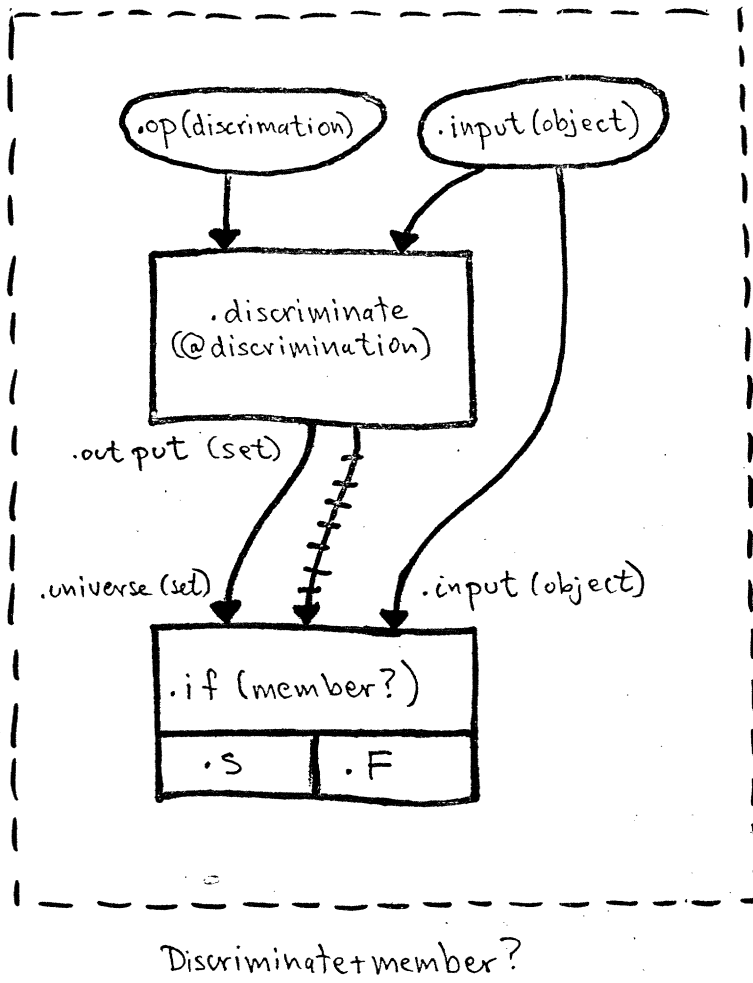 .op(discrimation)
.input(object)
.discriminate
(@discrimination)
.output (set)
.universe (set)
.input (object)
.if (member?)
.S
.F
Discriminate+member?